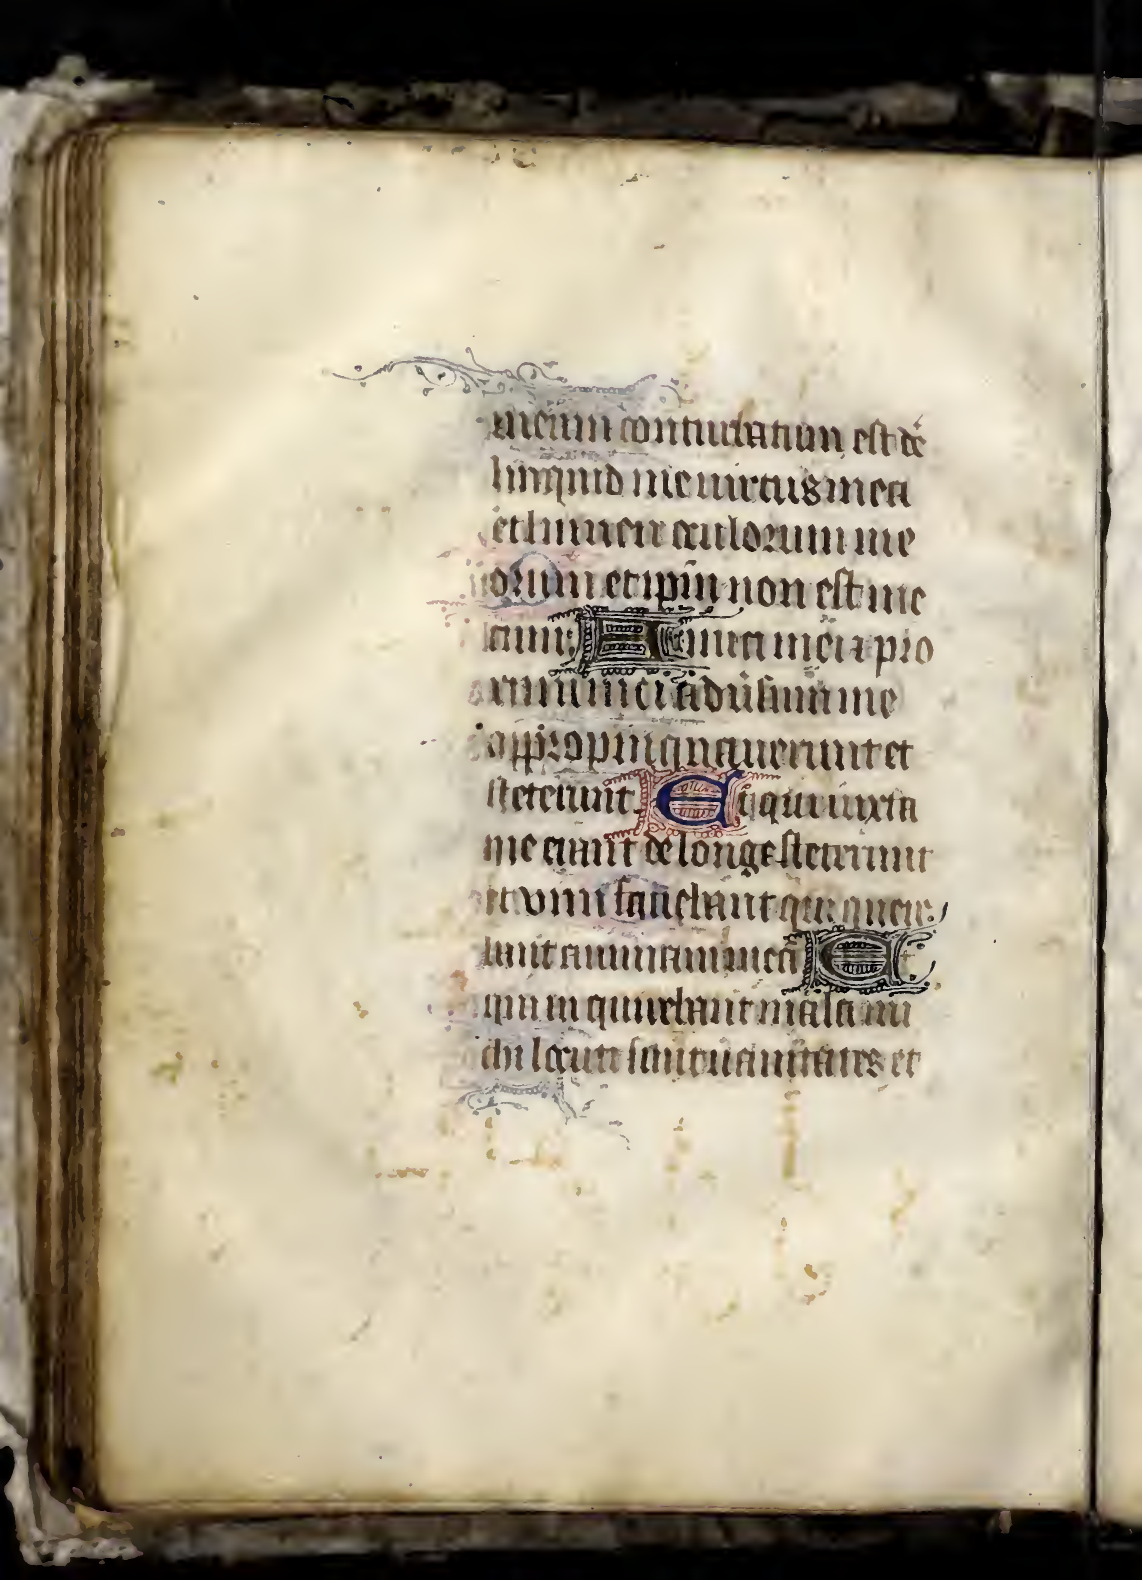 meum conturbatum est de
linquid me uirtus mea
et lumen oculorum me
orum et ipm̄ non est me
cum: Amici mei & pro
ximi mei aduersum me
appropinquauerunt et
steterunt Et qui iuxta
me erant de longe steterunt
et vim faciebant qui quere
bant animam meā Et
qui in quirebant mala mi
chi locuti sunt uanitates et